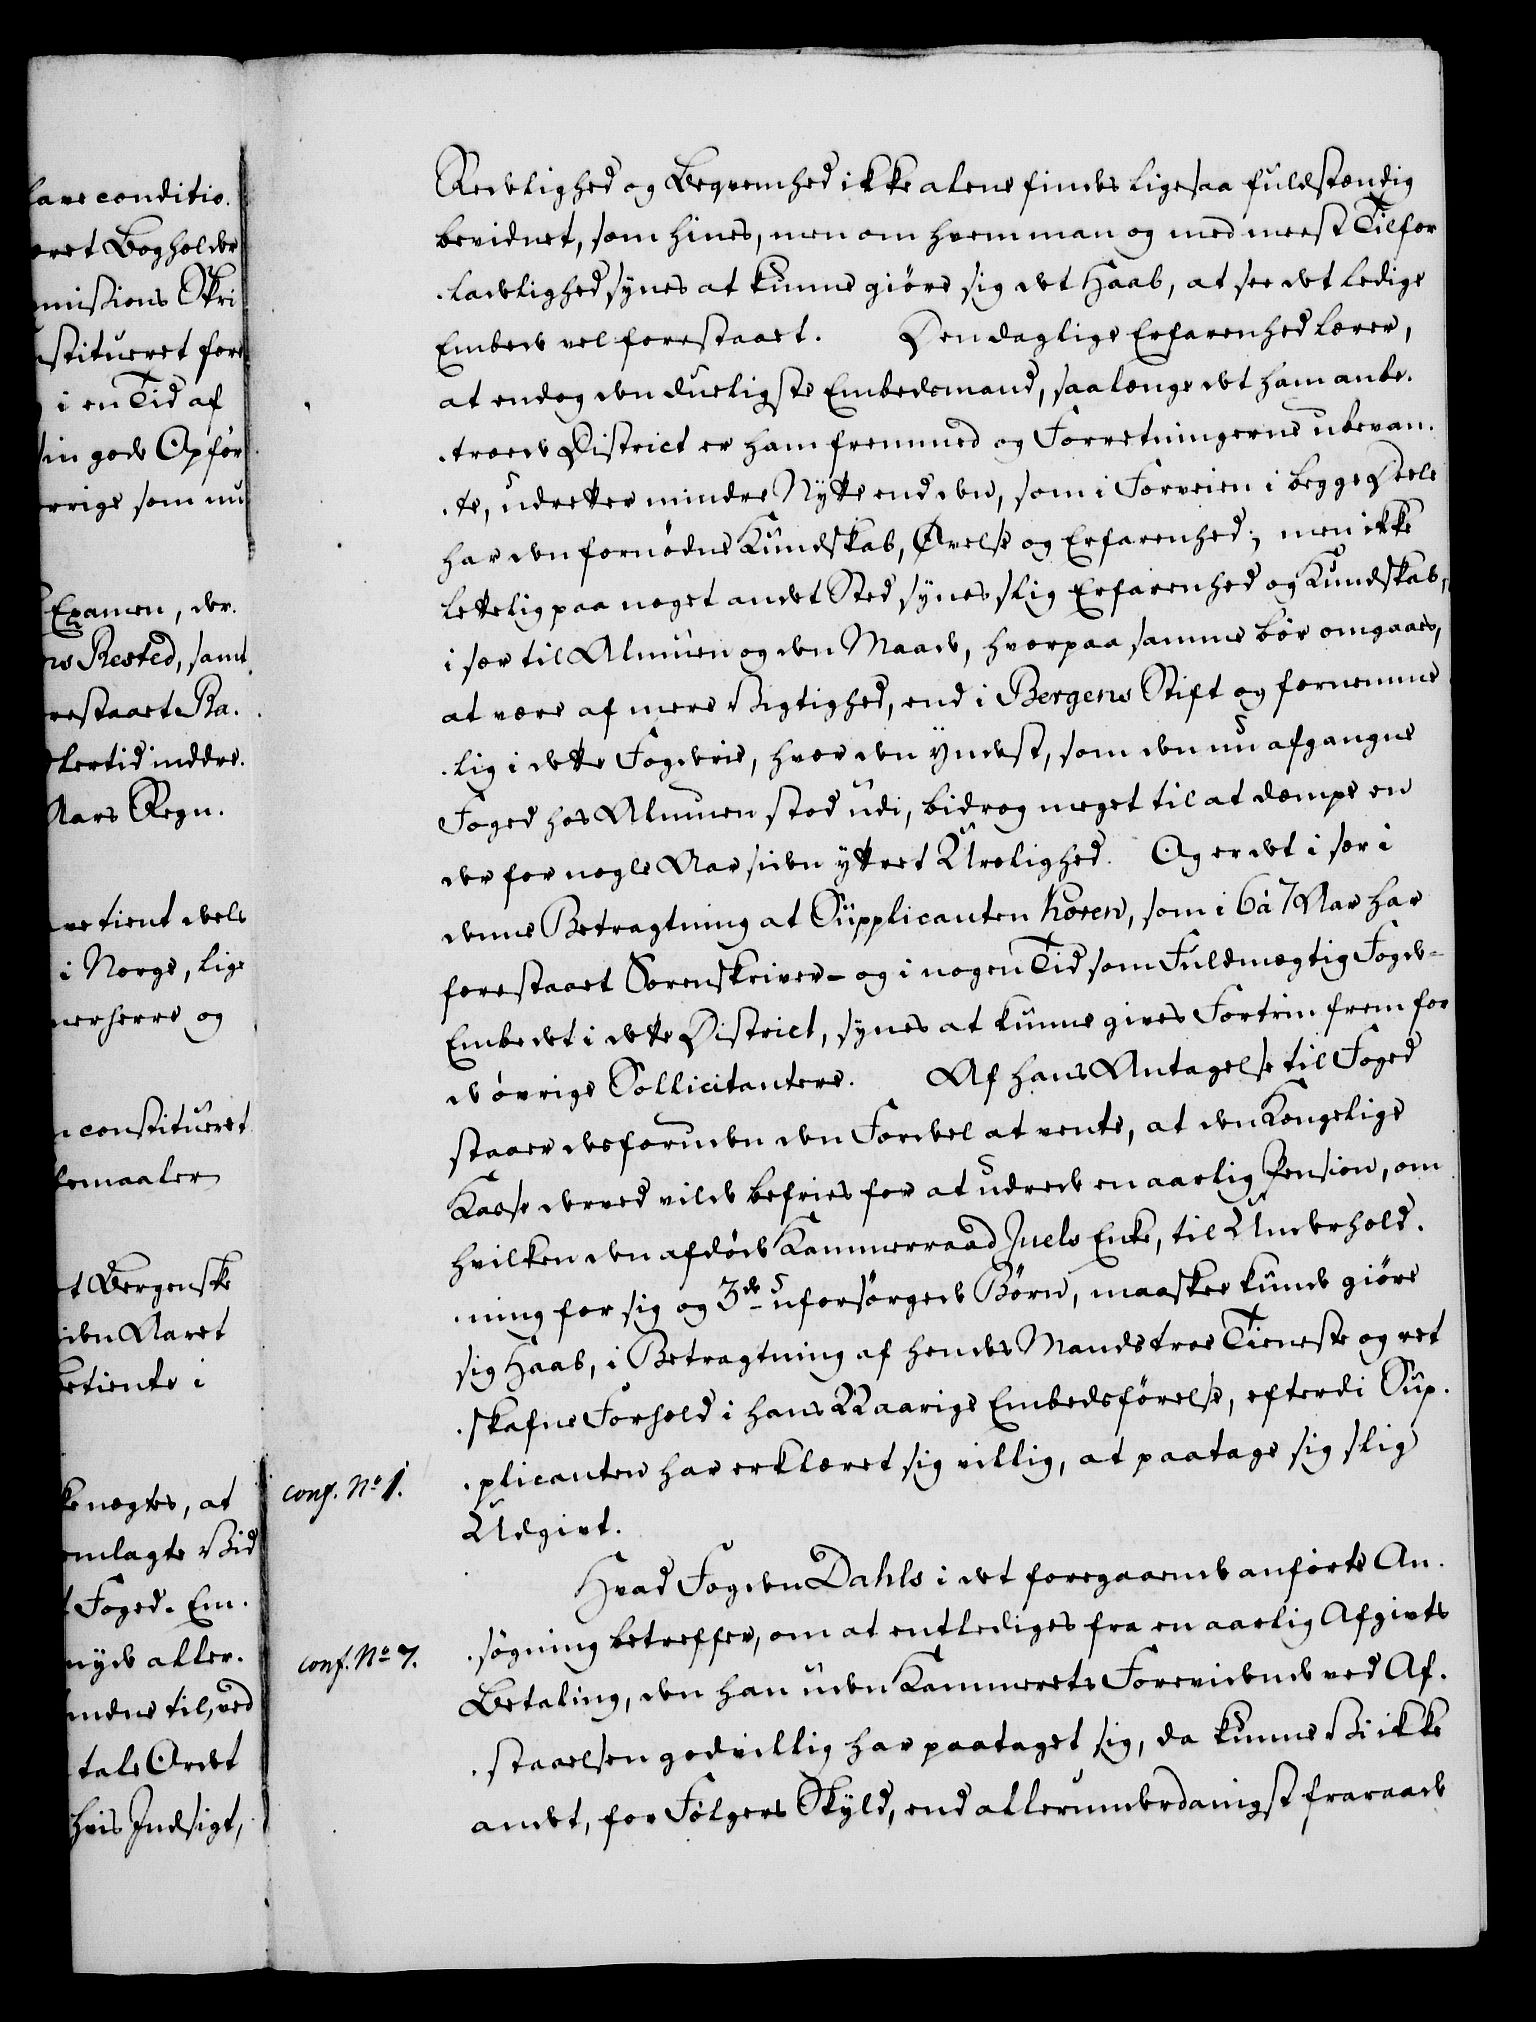 lare conditio.
æret Bogholder
missions Skri
stitueret fore
i en Tid af
in gode Opfør
vrige som nu
Examen, der.
ns Rested, samt
restaaet Ra.
lertid inddre.
Aars Regn.
ve tient dels
i Norge, lige
merherre og
n constitueret
lemaaler
t Bergenske
iden Aaret
betiente i
ke nægtes, at
emlagte Vid
Foged-Em.
nyde aller.
ndne til, ved
tale Ordet
hvis Indsigt,
Redelighed og Beqvemhed ikke alene findes ligesaa fuldstændig
bevidnet, som hines, men om hvem man og med meest Tilfor
-ladelighed synes at kunne giøre sig det Haab, at see det ledige
Embede vel forestaaet. Den daglige Erfarenhed lærer,
at endog den dueligste Embedsmand, saalænge det ham anbe-
-troede District er ham fremmed og Forretningerne ubevan-
-te, udretter mindre Nytte end den, som i Forveien i begge Deele
har den fornødne Kundskab, Øvelse og Erfarenhed; men ikke
lettelig paa noget andet Sted synes slig Erfarenhed og Kundskab,
i sær til Almuen og den Maade, hvorpaa samme bør omgaaes,
at være af mere Vigtighed, end i Bergens Stift og fornemme
-lig i dette Fogderie, hvor den Yndest, som den nu afgangne
Foged hos Almuen stod udi, bidrog meget til at dæmpe en
der for nogle Aar siden yttret Urolighed. Og er det i sær i
denne Betragtning at Supplicanten Koren, som i 6 à 7 Aar har
forestaaet Sorenskriver- og i nogen Tid som Fuldmægtig Fogde-
Embedet i dette District, synes at kunne gives Fortrin frem for
de øvrige Sollicitantere. Af hans Antagelse til Foged
staaer desforuden den Fordeel at vente, at den Kongelige
Kasse derved vilde befries for at udrede en aarlig Pension, om
hvilken den afdøde Kammerraad Juels Enke, til Underhold-
-ning for sig og 3de uforsørgede Børn, maaskee kunde giøre
sig Haab, i Betragtning af hendes Mands troe Tieneste og ret
-skafne Forhold i hans 22aarige Embedsførelse, efterdi Sup-
conf. No 1.
-plicanten har erklæret sig villig, at paatage sig slig
Udgivt.
Hvad Fogden Dahls i det foregaaende anførte An-
conf. No 7.
-søgning betreffer, om at entlediges fra en aarlig Afgivts
Betaling, den han uden Kammerets Forevidende ved Af-
-staaelsen godvillig har paataget sig, da kunne Vi ikke
andet, for Følgers Skyld, end allerunderdanigst fraraade